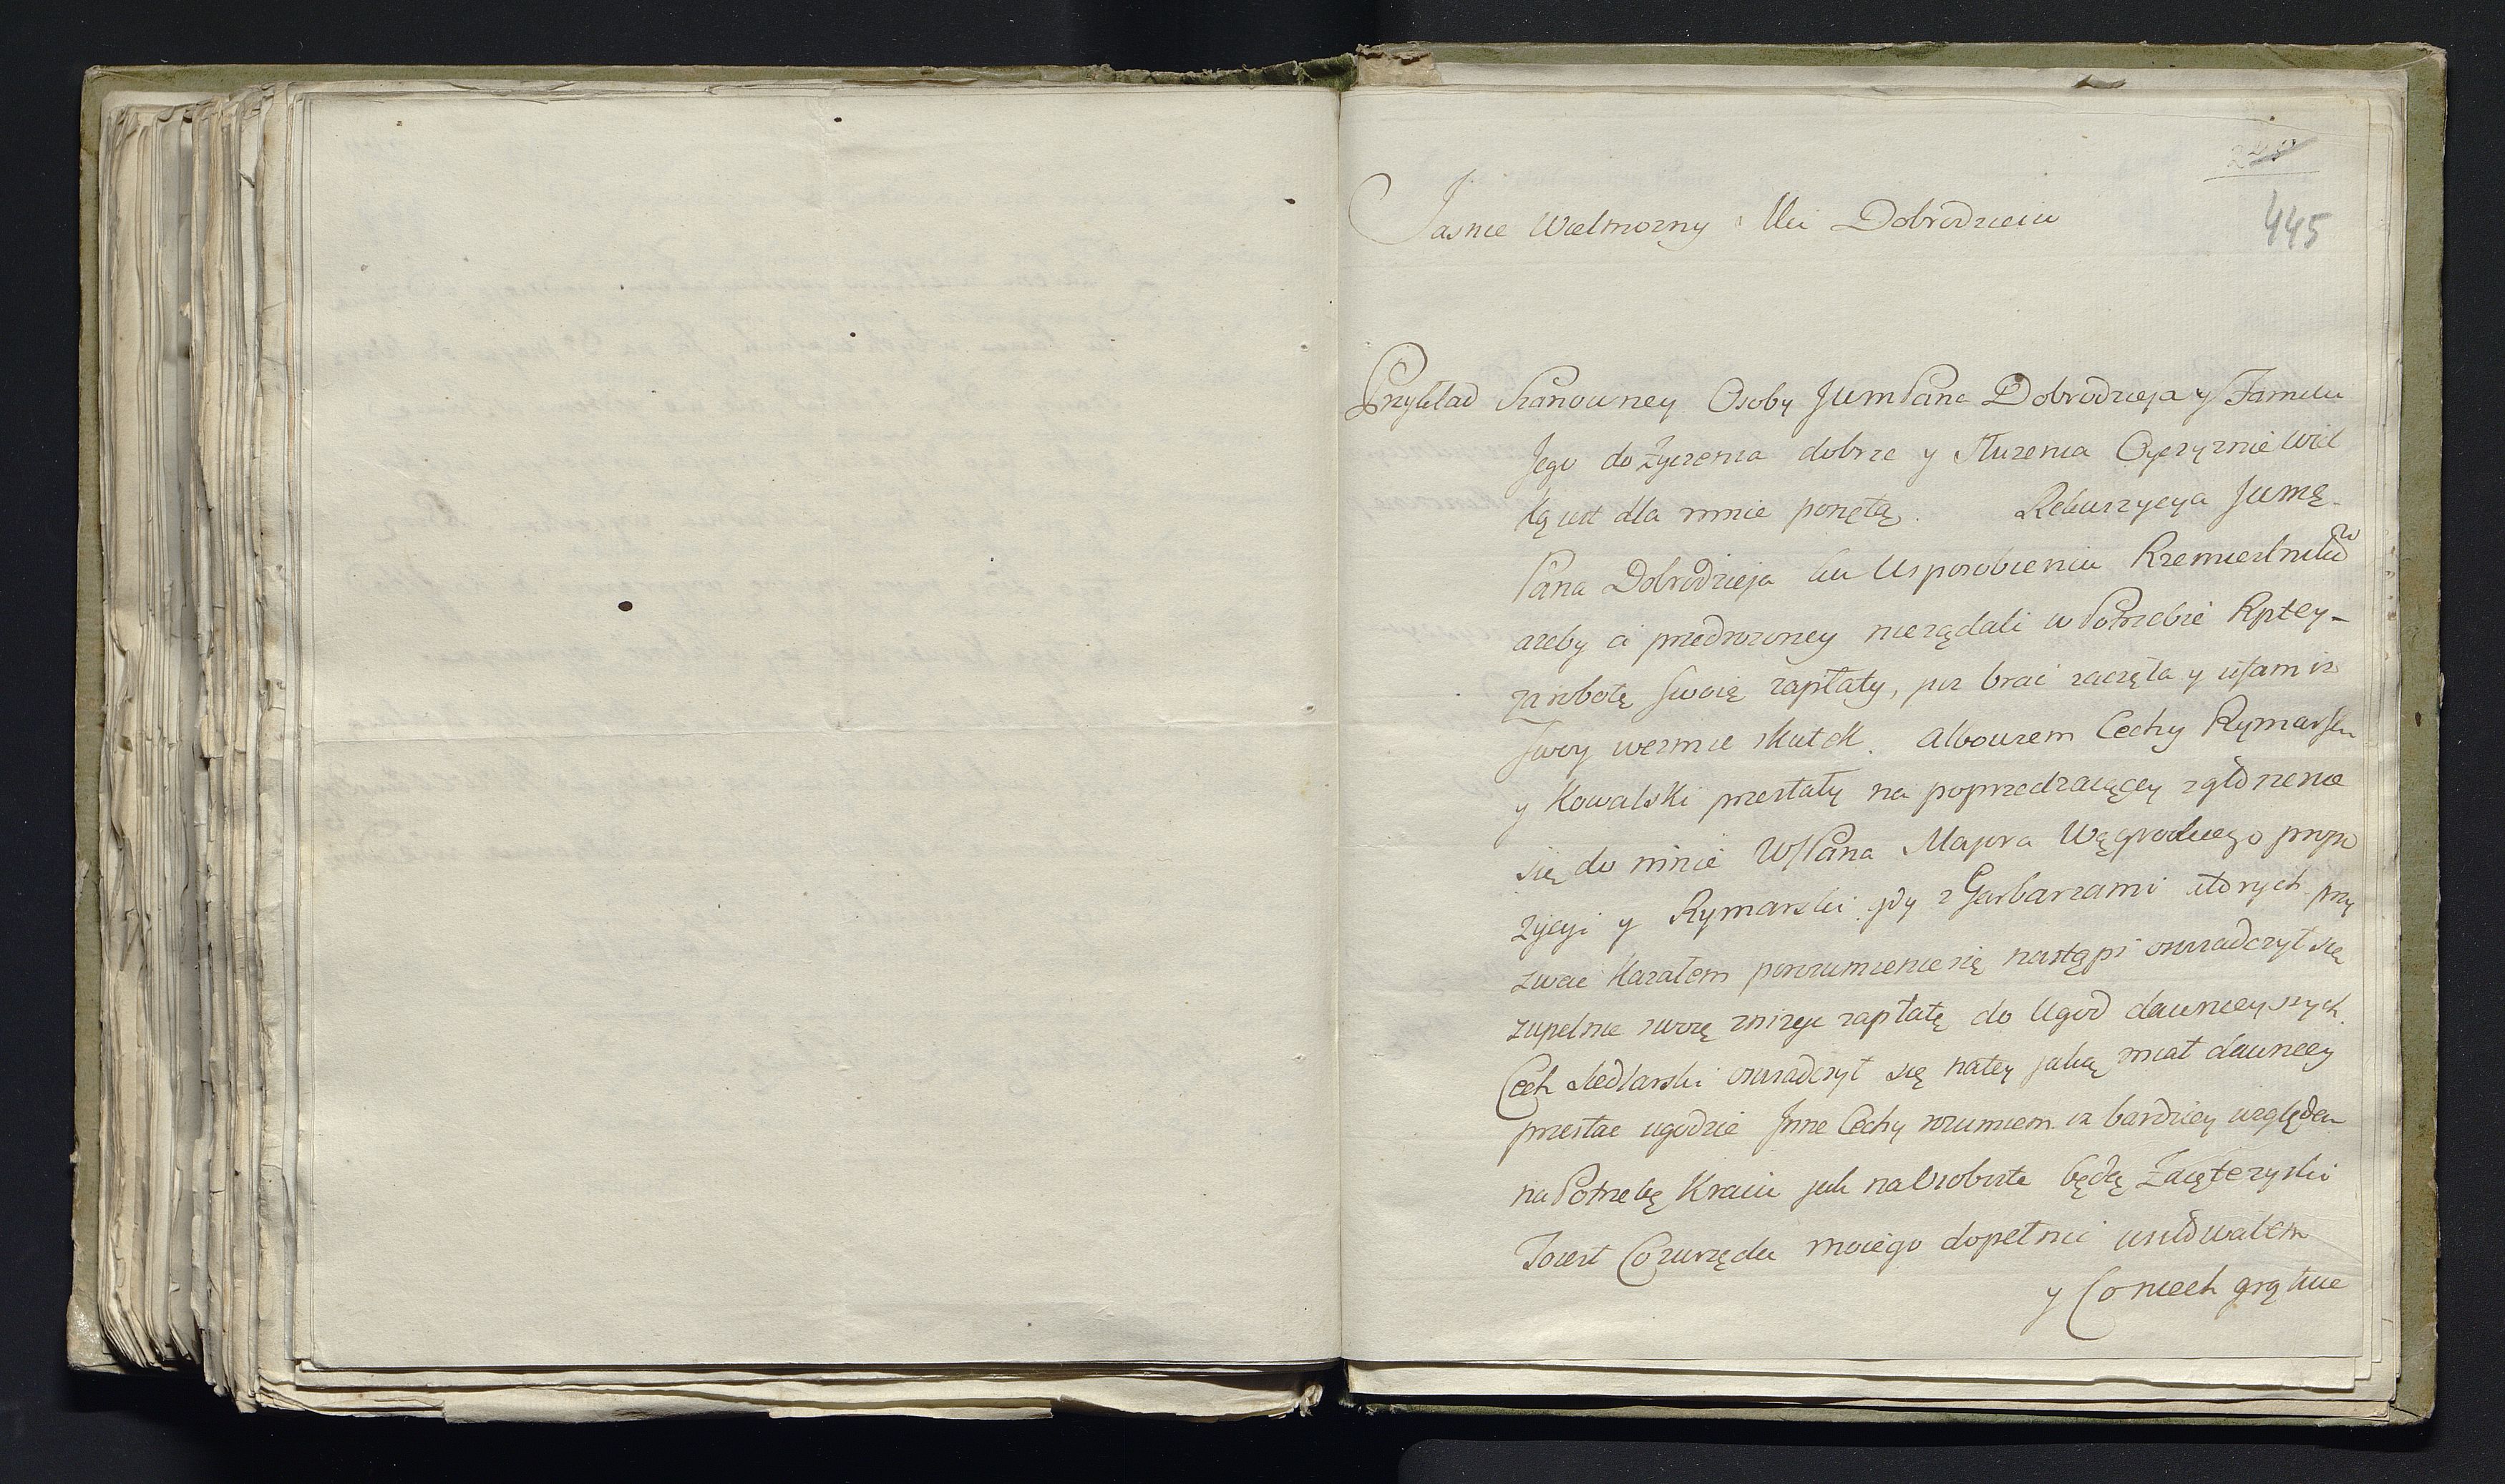 445
Jasnie Wielmozny Mci Dobrodzieiu
Przykład Szanowney Osoby JWmPana Dobrodzieja y Familii
Jego do życzenia dobrze y słuzenia Oyczyznie wiel
ką iest dla mnie ponętą. Rekwizycya JWmę-
Pana Dobrodzieja ku Usposobieniu Rzemieslnikow
azeby ci przedrozoney nieządali w Potrzebie Rptey-
za robotę Swoię zapłaty, juz brac zaczęła y ufam iz
swoy wezmie skutek. albowiem Cechy Rymarski
y Kowalski przestały na poprzedzaiącey zgłoszenie
się do mnie WJPana Majora Węgrodzkiego propo
zycyi y Rymarski gdy z Garbarzami ktorych przy
zwac kazałem porozumienie się nastąpi oswiadczył się
zupełnie swoię zniżyc zapłatę do Ugod dawnieyszych.
Cech siedlarski oswiadczył się na tey jaką miał dawniey
przestac ugodzie Jnne Cechy rozumiem iz bardziey względem
na Potrzebę Kraiu jak na Osobiste będą
To iest Co zurzędu moiego dopełnic usiłowałem
y Co niech